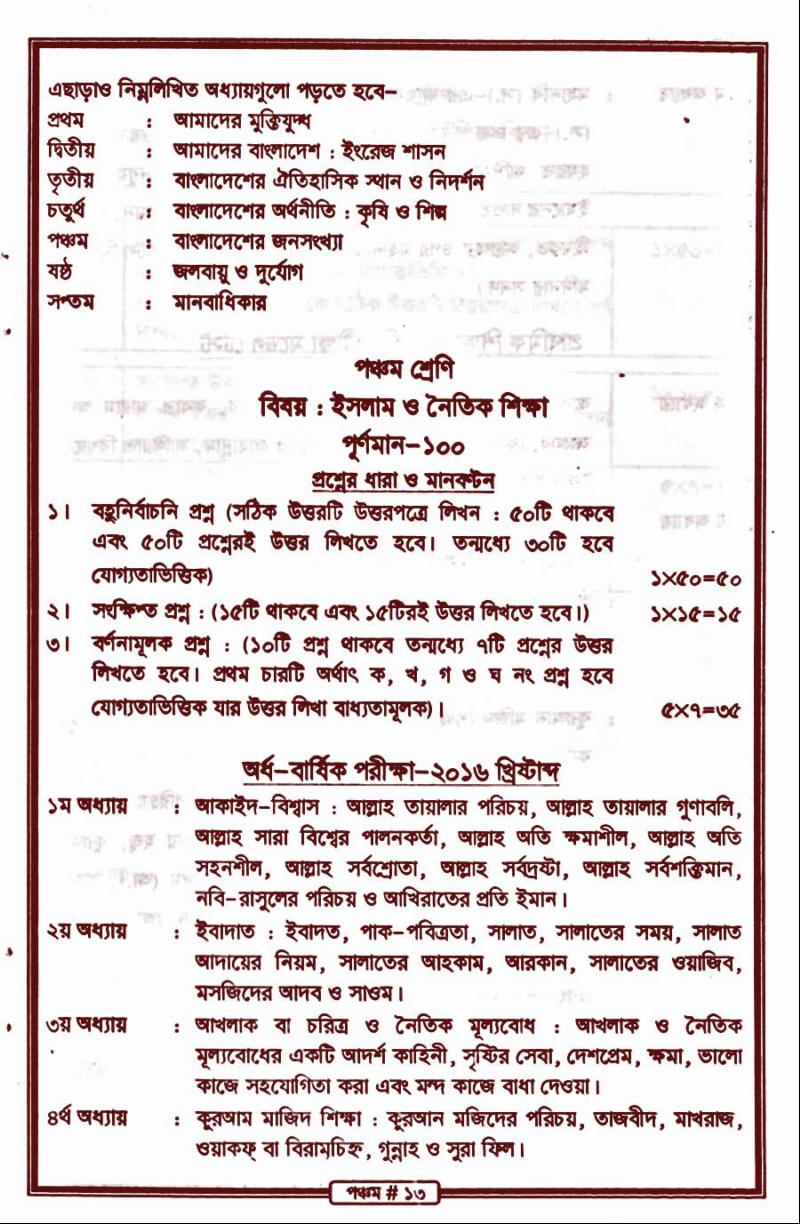 এছাড়াও নিম্নলিখিত অধ্যায়গুলো পড়তে হবে–
প্রথম : আমাদের মুক্তিযুদ্ধ
দ্বিতীয় : আমাদের বাংলাদেশ : ইংরেজ শাসন
তৃতীয় : বাংলাদেশের ঐতিহাসিক স্থান ও নিদর্শন
চতুর্থ : বাংলাদেশের অর্থনীতি : কৃষি ও শিল্প
পঞ্চম : বাংলাদেশের জনসংখ্যা
ষষ্ঠ : জলবায়ু ও দুর্যোগ
সপ্তম : মানবাধিকার
পঞ্চম শ্রেণি
বিষয় : ইসলাম ও নৈতিক শিক্ষা
পূর্ণমান–১০০
প্রশ্নের ধারা ও মানবণ্টন
১। বহুনির্বাচনি প্রশ্ন (সঠিক উত্তরটি উত্তরপত্রে লিখন : ৫০টি থাকবে
এবং ৫০টি প্রশ্নেরই উত্তর লিখতে হবে। তন্মধ্যে ৩০টি হবে
যোগ্যতাভিত্তিক) ১×৫০=৫০
২। সংক্ষিপ্ত প্রশ্ন : (১৫টি থাকবে এবং ১৫টিরই উত্তর লিখতে হবে।) ১×১৫=১৫
৩। বর্ণনামূলক প্রশ্ন : (১০টি প্রশ্ন থাকবে তন্মধ্যে ৭টি প্রশ্নের উত্তর
লিখতে হবে। প্রথম চারটি অর্থাৎ ক, খ, গ ও ঘ নং প্রশ্ন হবে
যোগ্যতাভিত্তিক যার উত্তর লিখা বাধ্যতামূলক)। ৫×৭=৩৫
অর্ধ–বার্ষিক পরীক্ষা–২০১৬ খ্রিষ্টাব্দ
১ম অধ্যায় : আকাইদ–বিশ্বাস : আল্লাহ তায়ালার পরিচয়, আল্লাহ তায়ালার গুণাবলি,
আল্লাহ সারা বিশ্বের পালনকর্তা, আল্লাহ অতি ক্ষমাশীল, আল্লাহ অতি
সহনশীল, আল্লাহ সর্বশ্রোতা, আল্লাহ সর্বদ্রষ্টা, আল্লাহ সর্বশক্তিমান,
নবি–রাসুলের পরিচয় ও আখিরাতের প্রতি ইমান।
২য় অধ্যায় : ইবাদাত : ইবাদত, পাক–পবিত্রতা, সালাত, সালাতের সময়, সালাত
আদায়ের নিয়ম, সালাতের আহকাম, আরকান, সালাতের ওয়াজিব,
মসজিদের আদব ও সাওম।
৩য় অধ্যায় : আখলাক বা চরিত্র ও নৈতিক মূল্যবোধ : আখলাক ও নৈতিক
মূল্যবোধের একটি আদর্শ কাহিনী, সৃষ্টির সেবা, দেশপ্রেম, ক্ষমা, ভালো
কাজে সহযোগিতা করা এবং মন্দ কাজে বাধা দেওয়া।
৪র্থ অধ্যায় : কুরআম মাজিদ শিক্ষা : কুরআন মজিদের পরিচয়, তাজবীদ, মাখরাজ,
ওয়াকফ্ বা বিরামচিহ্ন, গুন্নাহ ও সুরা ফিল।
পঞ্চম # ১৩